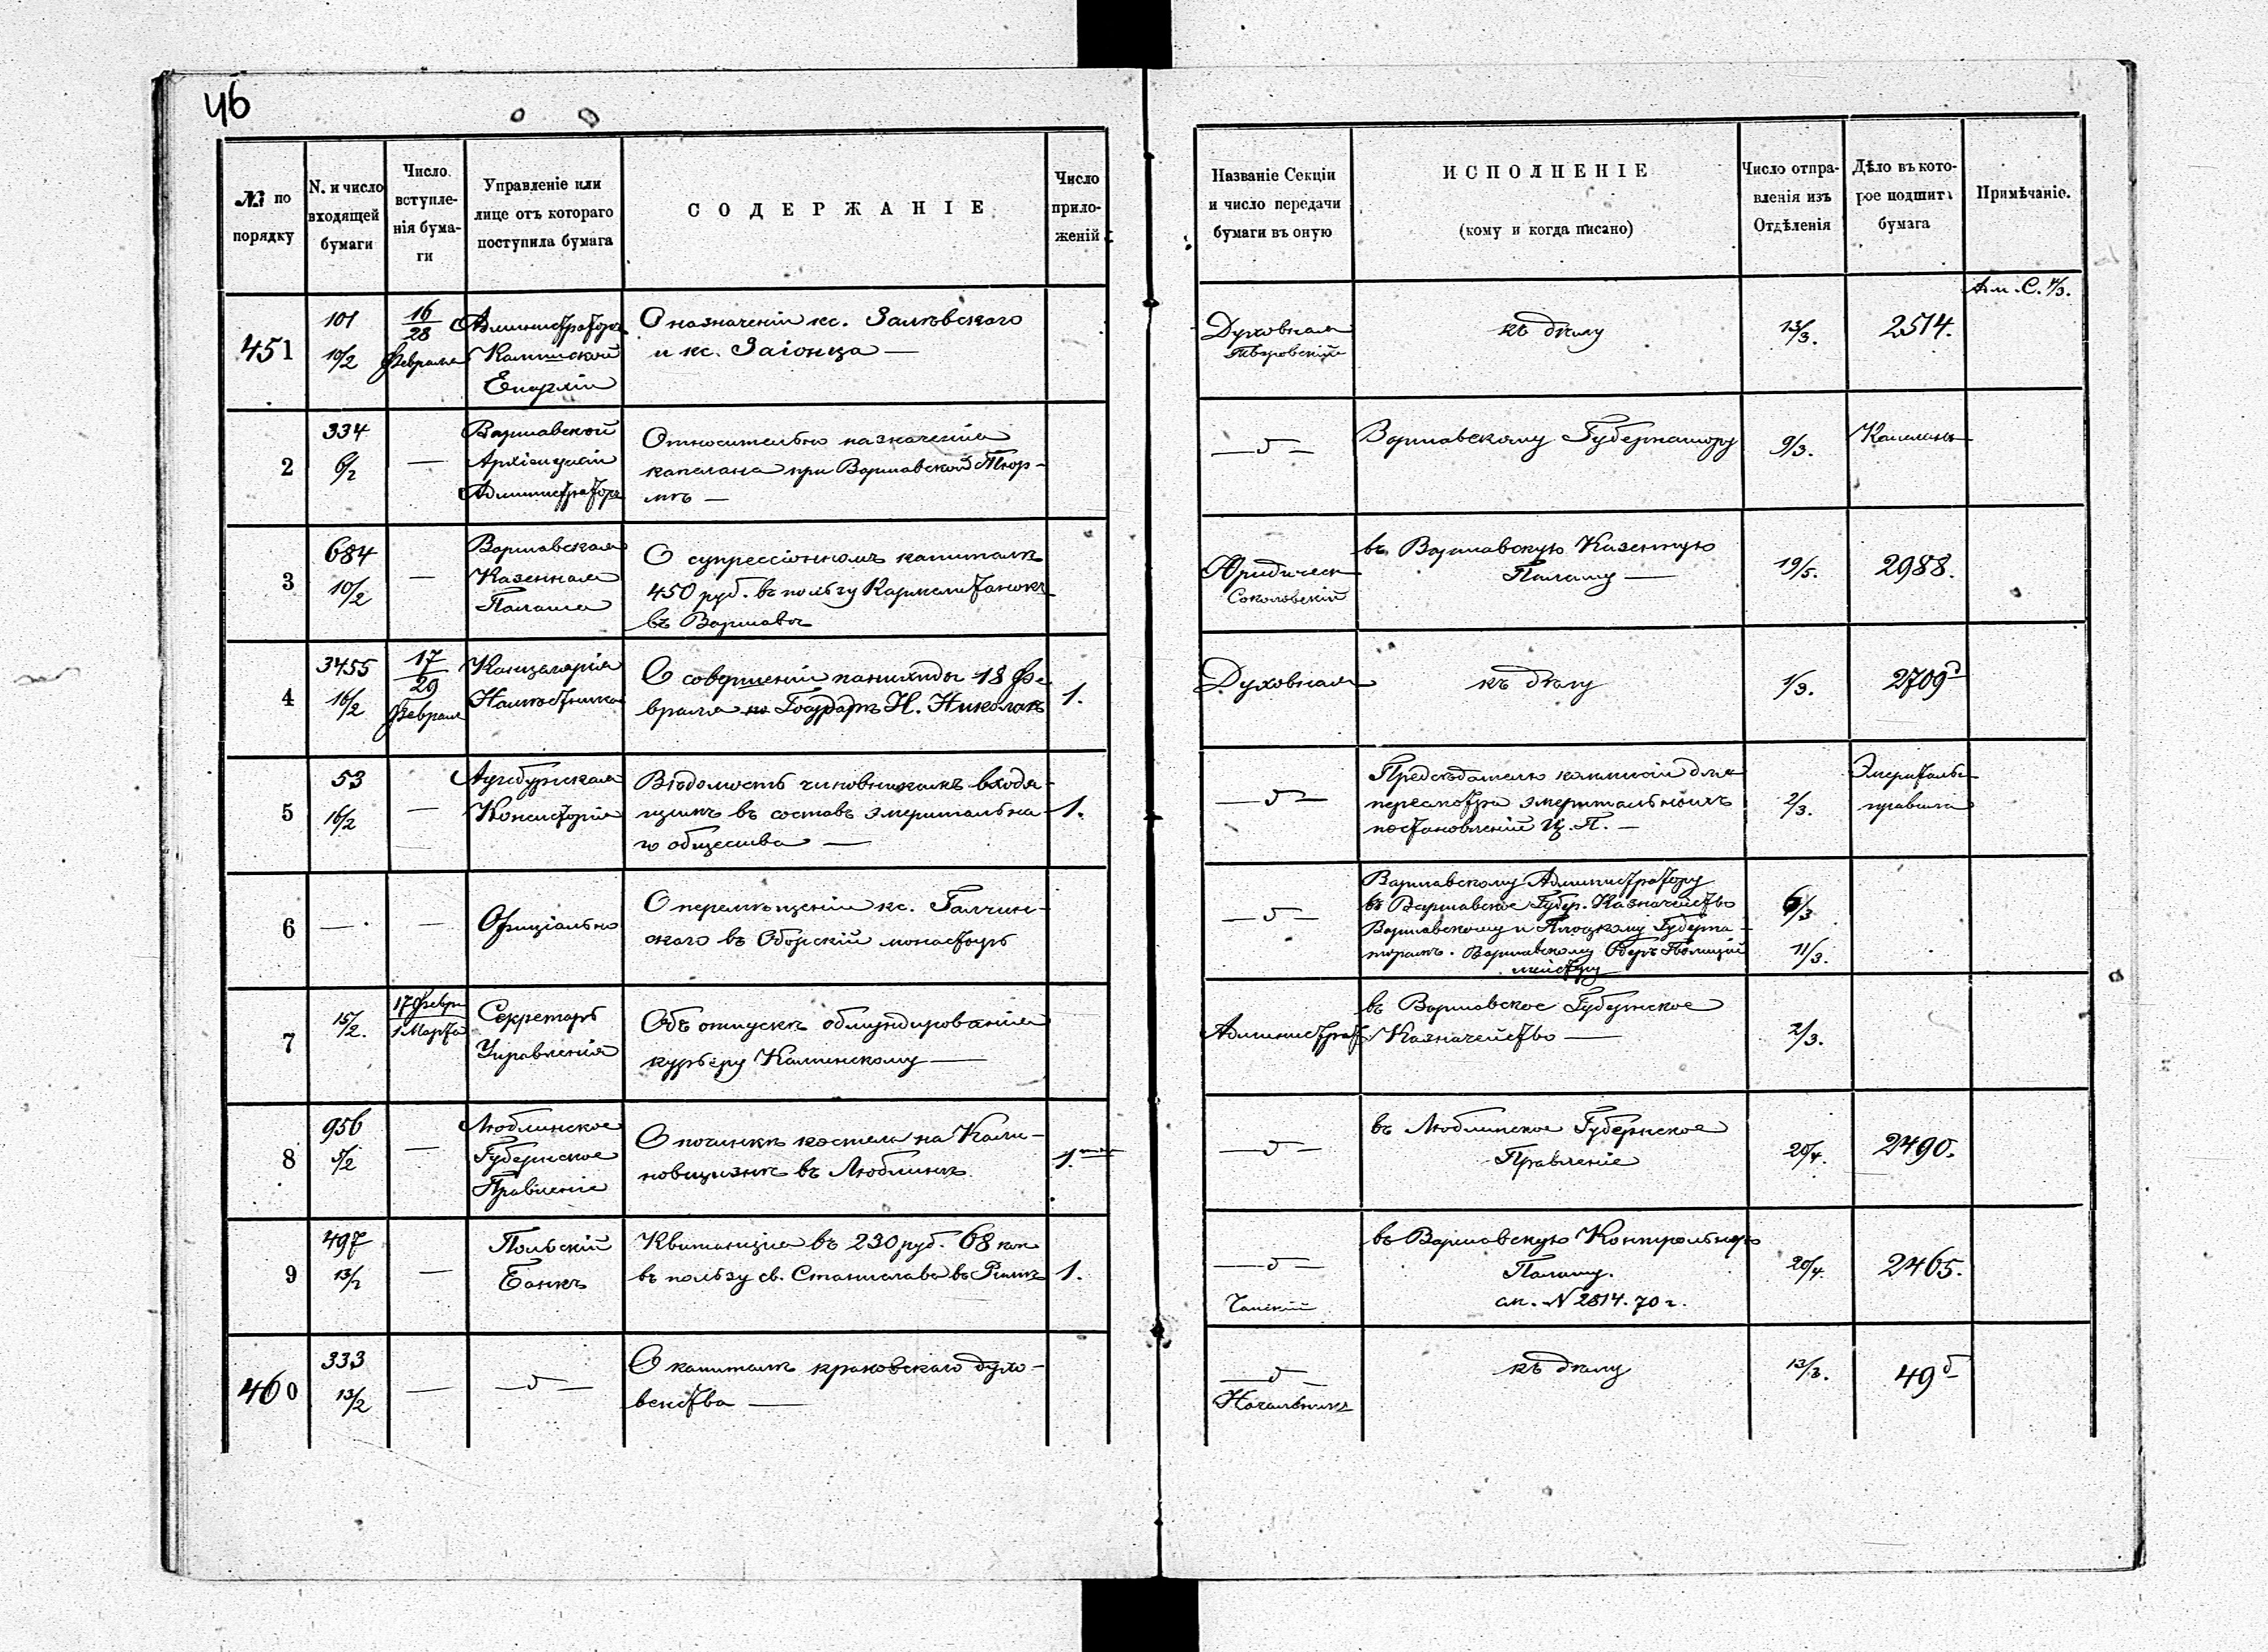 46
№ по порядку
N. и число входящей бумаги
Число вступле- нія бума- ги
Управленіе или лице отъ котораго поступила бумага
СОДЕРЖАНІЕ
Число прило- женій
Названіе Секціи и число передачи бумаги въ оную
ИСПОЛНЕНІЕ
(кому и когда писано)
Число отпра- вленія изъ Отдѣленія
Дѣло въ кото- рое подшита бумага
Примѣчаніе.
451
101
10/2
16/28 Февраля
Администраторъ
Калишской
Епархіи
О назначеніи кс. Залѣвскаго
и кс. Заіонца —
Духовная
къ дѣлу
13/3.
2514.
2
334
6/2
—
Варшавской
Архіепархіи
Администраторъ
Относительно назначенія
капелана при Варшавской Тюрь-
мѣ —
— „ —
Варшавскому Губернатору
9/3.
Капеланы
3
684
10/2
—
Варшавская
Казенная
Палата
О супрессіонномъ капиталѣ
450 руб. въ пользу Кармелитанокъ
въ Варшавѣ
Юридическ
Соколовскій
въ Варшавскую Казенную
Палату —
19/5.
2988.
4
3455
16/2
17/29 Февраля
Канцелярія
Намѣстника
О совершеніи панихиды 18 Фе-
враля по Государѣ Н. Николаѣ
1.
Духовная
къ дѣлу
1/3.
2709
5
53
16/2
—
Аугсбургская
Консисторія
Вѣдомость чиновникамъ входя-
щимъ въ составъ эмеритальна-
го общества —
1.
— „ —
Предсѣдателю коммисіи для
пересмотра эмеритальныхъ
постановленій Ц. П. —
2/3.
Эмериталь-
правила
6
—
—
Офиціально
О перемѣщеніи кс. Галчин-
скаго въ Оборскій монастырь
— „ —
Варшавскому Администратору
въ Варшавское Губер. Казначейство
Варшавскому и Плоцкому Губерна-
торамъ. Варшавскому Оберъ Полицій-
мейстеру
6/3
11/3.
7
15/2.
17 Февра
1 Марта
Секретарь
Управленія
Объ отпускѣ обмундированія
курьеру Калинскому —
Администрат.
въ Варшавское Губернское
Казначейство —
2/3.
8
956
5/2
—
Люблинское
Губернское
Правленіе
О починкѣ костела на Кали-
новщизнѣ въ Люблинѣ
1.
— „ —
въ Люблинское Губернское
Правленіе
20/4.
2490.
9
497
13/2
—
Польскій
Банкъ
Квитанція въ 230 руб. 68 коп
въ пользу св. Станислава въ Римѣ
1.
— „ —
въ Варшавскую Контрольную
Палату.
см. N 2814. 70 г.
20/4.
2465.
460
333
13/2
—
— „ —
О капиталѣ краковскаго духо-
венства —
— „ —
Начальникъ
къ дѣлу
13/3.
49б